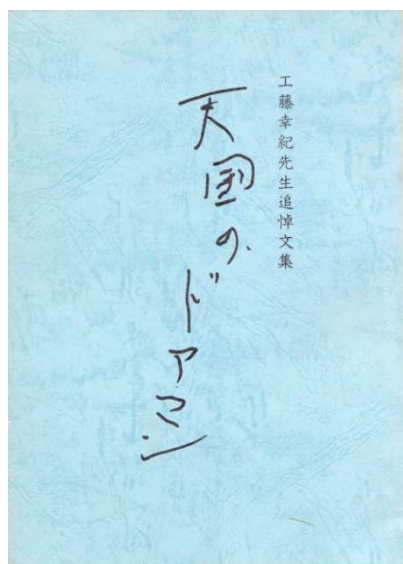 工藤幸紀先生追悼文集
天国のドアマン